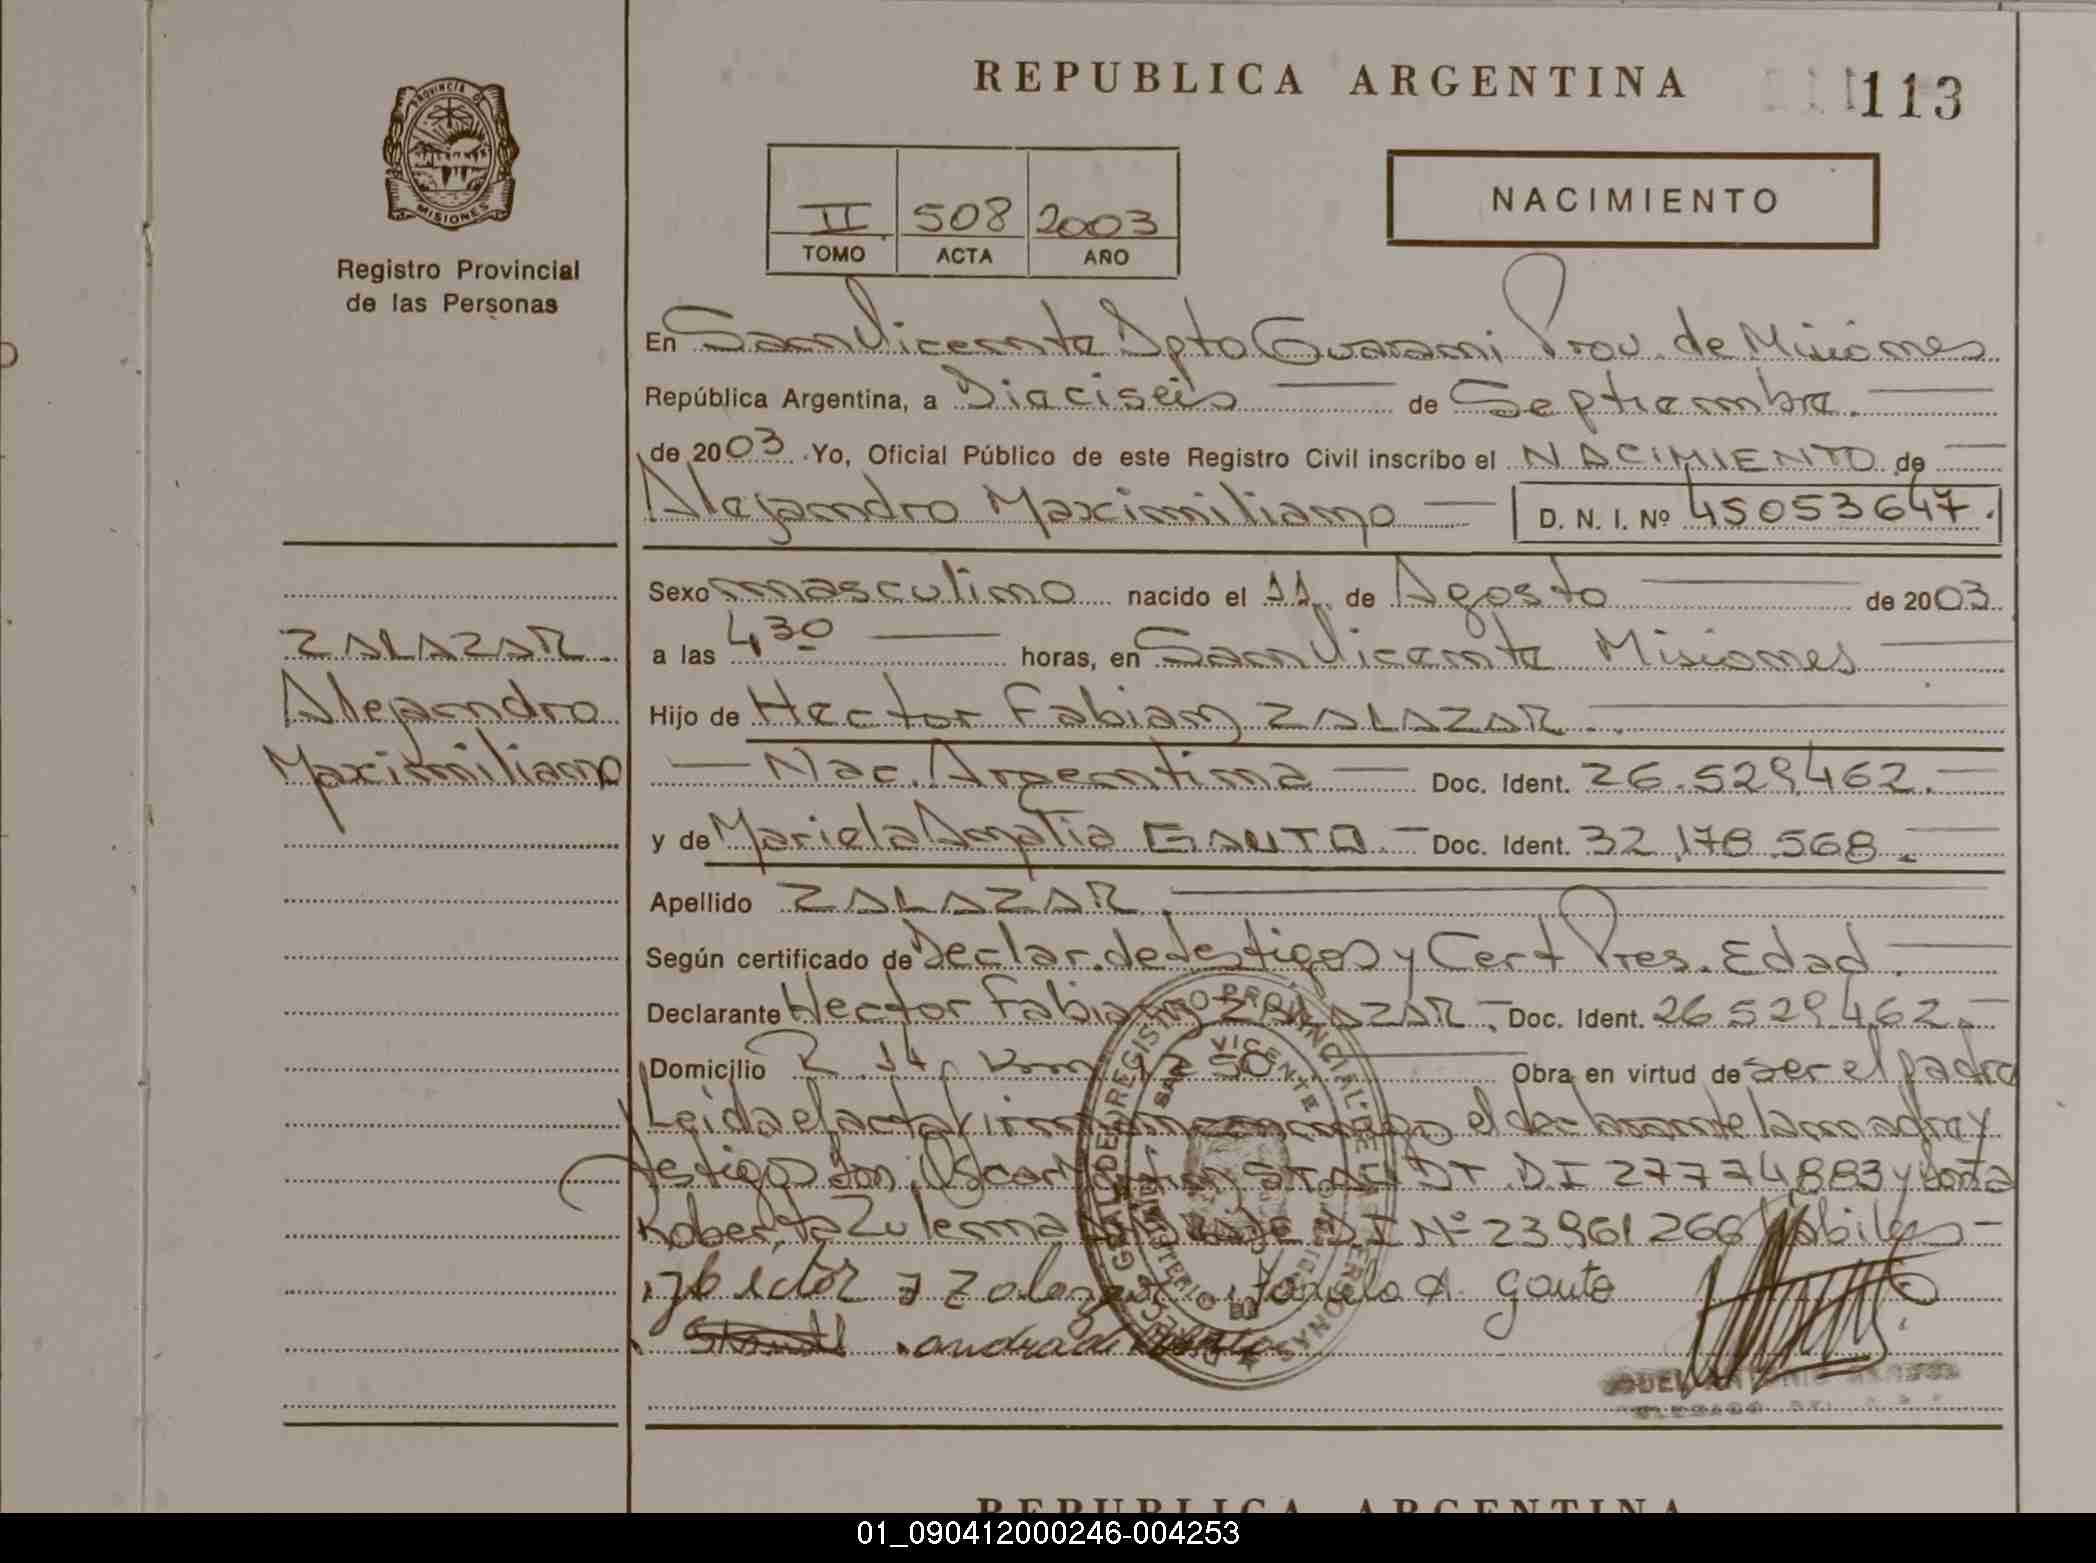 REPUBLICA ARGENTINA
113
PROVINCIA D
MISIONES
Registro Provincial
de las Personas
II 508 2003
TOMO ACTA AÑO
NACIMIENTO
En San Vicente Dpto Guarani Prov. de Misiones
República Argentina, a Dieciseis de Septiembre.
de 2003. Yo, Oficial Público de este Registro Civil inscribo el NACIMIENTO de
Alejandro Maximiliano D. N. I. Nº 45053647.
Sexo masculino nacido el 11 de Agosto de 2003
a las 4 30 horas, en San Vicente Misiones
Hijo de Hector Fabian ZALAZAR
Nac. Argentina Doc. Ident. 26.529.462.
y de Mariela Amalia GAUTO. Doc. Ident. 32.178.568.
Apellido ZALAZAR.
Según certificado de Declar. de testigos y Cert Pres. Edad.
Declarante Hector Fabian ZALAZAR. Doc. Ident. 26.529.462.
Domicilio R. 14, Km 1250 Obra en virtud de ser el padre
Leida el acta firman conmigo el declarante la madre y
testigos don Oscar D.I 27774883 y doña
Roberta Zulema D I Nº 23961266 habiles
ZALAZAR
Alejandro
Maximiliano
Hector F Zalazar Mariela A. Gauto
REGISTRO PROVINCIAL DE LAS PERSONAS
SAN VICENTE
REPUBLICA ARGENTINA
01_090412000246-004253